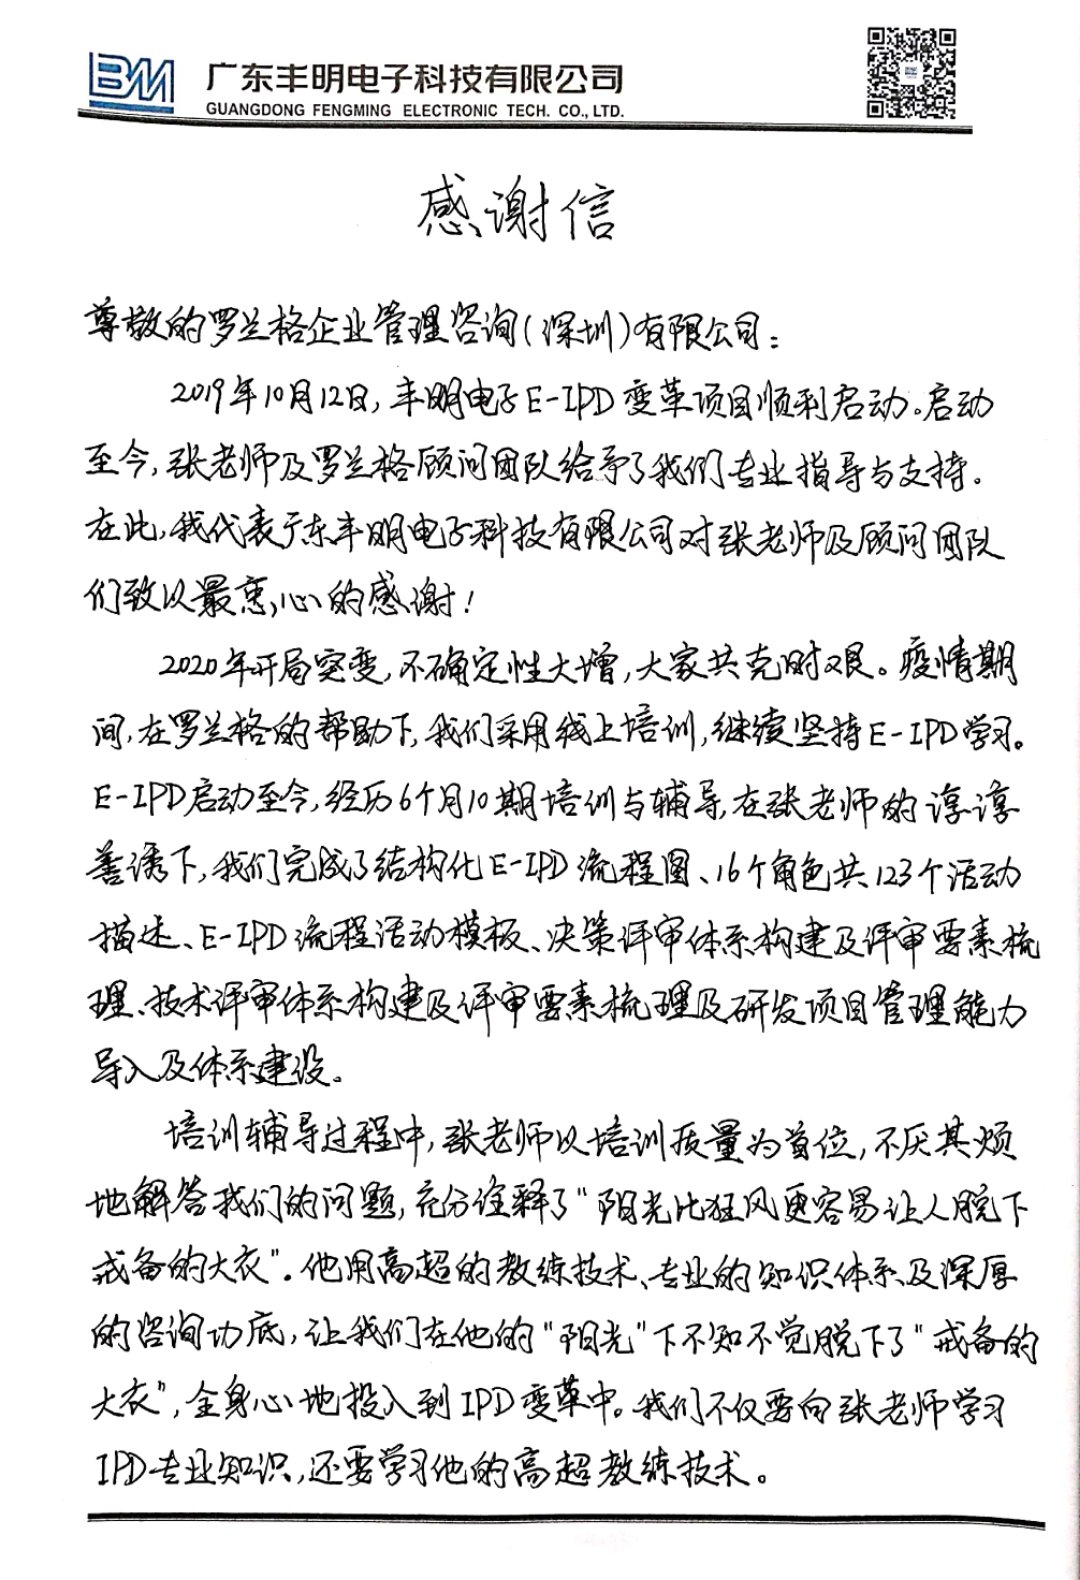 BM
广东丰明电子科技有限公司
GUANGDONG FENGMING ELECTRONIC TECH. CO., LTD.
感谢信
尊敬的罗兰格企业管理咨询(深圳)有限公司:
2019年10月12日,丰明电子E-IPD变革项目顺利启动。启动
至今,张老师及罗兰格顾问团队给予了我们专业指导与支持。
在此,我代表广东丰明电子科技有限公司对张老师及顾问团队
们致以最衷心的感谢!
2020年开局突变,不确定性大增,大家共克时艰。疫情期
间,在罗兰格的帮助下,我们采用线上培训,继续坚持E-IPD学习。
E-IPD启动至今,经历6个月10期培训与辅导,在张老师的谆谆
善诱下,我们完成了结构化E-IPD流程图、16个角色共123个活动
描述、E-IPD流程活动模板、决策评审体系构建及评审要素梳
理、技术评审体系构建及评审要素梳理及研发项目管理能力
导入及体系建设。
培训辅导过程中,张老师以培训质量为首位,不厌其烦
地解答我们的问题,充分诠释了"阳光比狂风更容易让人脱下
戒备的大衣"。他用高超的教练技术、专业的知识体系及深厚
的咨询功底,让我们在他的"阳光"下不知不觉脱下了"戒备的
大衣",全身心地投入到IPD变革中。我们不仅要向张老师学习
IPD专业知识,还要学习他的高超教练技术。